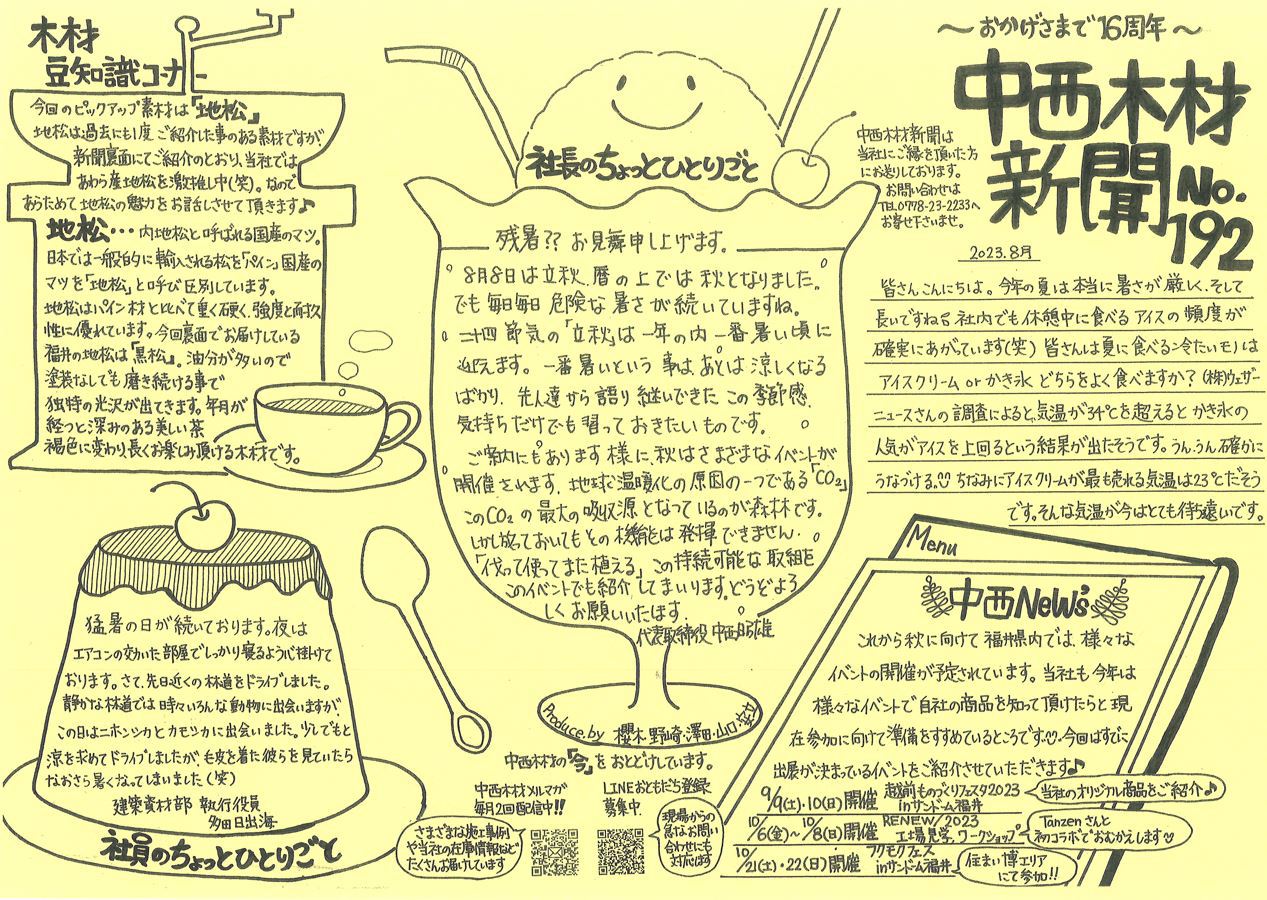 〜おかげさまで16周年〜
中西木材
新聞
No.
192
2023.8月
中西木材新聞は
当社にご縁を頂いた方
にお送りしております。
お問い合わせは
TEL0778-23-2233へ
お寄せ下さいませ。
皆さんこんにちは。今年の夏は本当に暑さが厳しく、そして
長いですね。社内でも休憩中に食べるアイスの頻度が
確実にあがっています(笑) 皆さんは夏に食べる冷たいモノは
アイスクリーム or かき氷 どちらをよく食べますか? (株)ウェザー
ニュースさんの調査によると、気温が34℃を超えると かき氷の
人気がアイスを上回るという結果が出たそうです。うん、うん、確かに
うなづける。ちなみにアイスクリームが最も売れる気温は23℃だそう
です。そんな気温が今はとても待ち遠いです。
木材
豆知識コーナー
今回のピックアップ素材は「地松」
地松は過去にも1度ご紹介した事のある素材ですが、
新聞裏面にてご紹介のとおり、当社では
あわら産地松を激推し中(笑)。なので
あらためて地松の魅力をお話しさせて頂きます♪
地松…内地松と呼ばれる国産のマツ。
日本では一般的に輸入される松を「パイン」国産の
マツを「地松」と呼び区別しています。
地松はパイン材と比べて重く硬く、強度と耐久
性に優れています。今回裏面でお届けしている
福井の地松は「黒松」。油分が多いので
塗装なしでも磨き続ける事で
独特の光沢が出てきます。年月が
経つと深みのある美しい茶
褐色に変わり長くお楽しみ頂ける木材です。
社長のちょっとひとりごと
残暑?? お見舞申し上げます。
8月8日は立秋、暦の上では秋となりました。
でも毎日毎日危険な暑さが続いていますね。
二十四節気の「立秋」は一年の内一番暑い頃に
迎えます。一番暑いという事は、あとは涼しくなる
ばかり、先人達から語り継いできたこの季節感、
気持ちだけでも習っておきたいものです。
ご案内にもあります様に、秋はさまざまなイベントが
開催されます、地球温暖化の原因の一つである「CO₂」
このCO₂の最大の吸収源となっているのが森林です。
しかし放っておいてもその機能は発揮できません。
「伐って使ってまた植える」この持続可能な取組を
このイベントでも紹介してまいります。どうぞよろ
しくお願いいたします。
代表取締役 中西昭雄
Produce by 櫻木・野崎・澤田・山口・
猛暑の日が続いております。夜は
エアコンの効いた部屋でしっかり寝るよう心掛けて
おります。さて、先日近くの林道をドライブしました。
静かな林道では時々いろんな動物に出会いますが、
この日はニホンシカとカモシカに出会いました。少しでもと
涼を求めてドライブしましたが、毛皮を着た彼らを見ていたら
なおさら暑くなってしまいました(笑)
建築資材部 執行役員
多田日出海
社員のちょっとひとりごと
中西木材の「今」をおとどけしています。
中西木材メルマガ
毎月2回配信中!!
LINEおともだち登録
募集中。
さまざまな施工事例
や当社の在庫情報など
たくさんお届けしています
現場からの
急なお問い
合わせにも
対応します
Menu
中西NeWs
これから秋に向けて福井県内では、様々な
イベントの開催が予定されています。当社も今年は
様々なイベントで自社の商品を知って頂けたらと現
在参加に向けて準備をすすめているところです♡。今回はすでに
出展が決まっているイベントをご紹介させていただきます♪
9/9(土)・10(日)開催 越前ものづくりフェスタ2023 inサンドーム福井
当社のオリジナル商品をご紹介♪
10/6(金)〜10/8(日)開催 RENEW/2023 工場見学、ワークショップ
Tanzenさんと
初コラボでおむかえします♡
10/21(土)・22(日)開催 フクモクフェス inサンドーム福井
住まい博エリア
にて参加!!